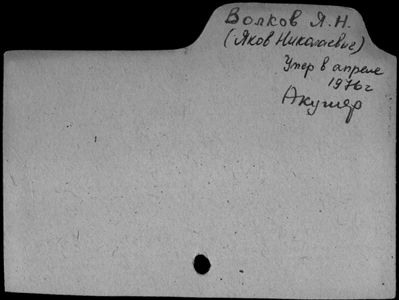 Волков Я.Н.
(Яков Николаевич)
Умер в апреле
1976 г
Акушер